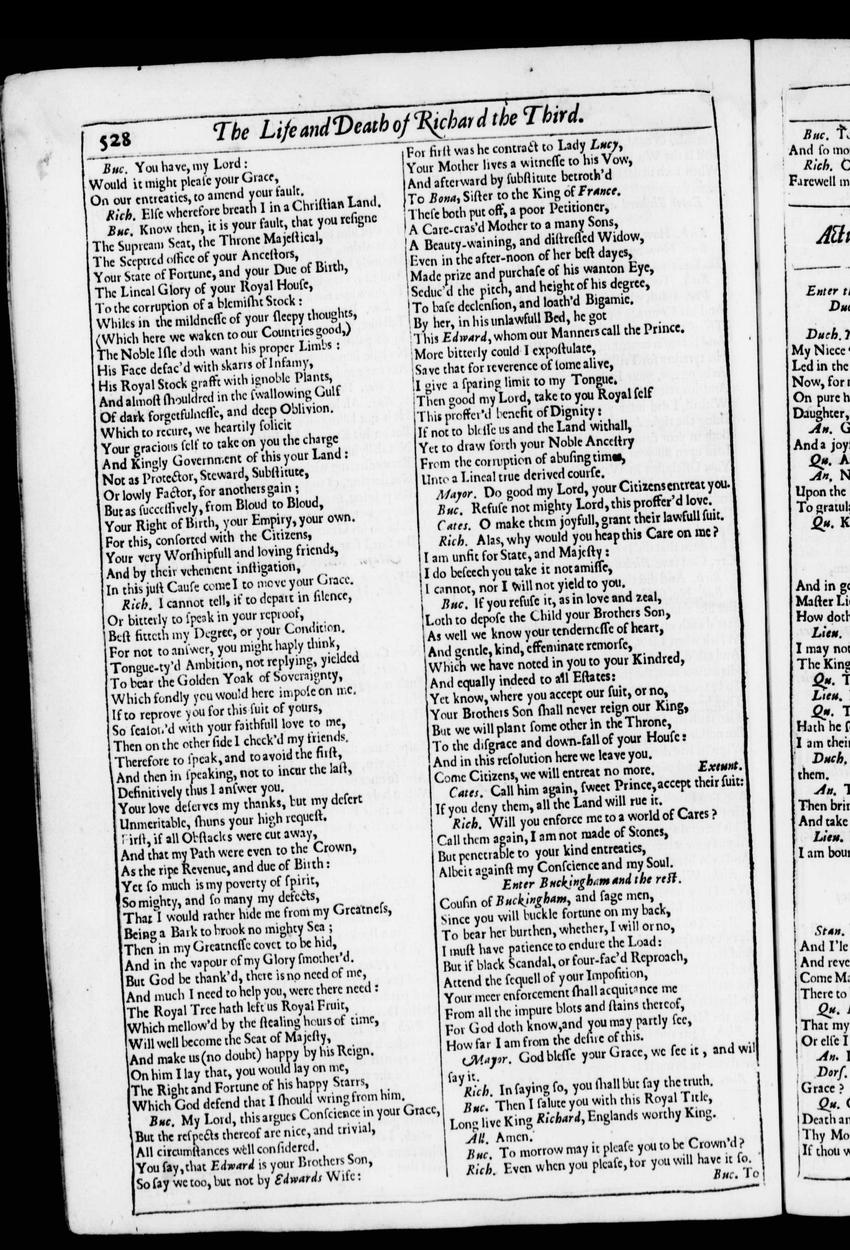 528
The Life and Death of Richard the Third.
Buc. You have, my Lord:
Would it might pleaſe your Grace,
On our entreaties, to amend your fault.
Rich. Elſe wherefore breath I in a Chriſtian Land.
Buc. Know then, it is your fault, that you reſigne
The Supream Seat, the Throne Majeſtical,
The Sceptred office of your Anceſtors,
Your State of Fortune, and your Due of Birth,
The Lineal Glory of your Royal Houſe,
To the corruption of a blemiſht Stock:
Whiles in the mildneſſe of your ſleepy thoughts,
(Which here we waken to our Countries good,)
The Noble Iſle doth want his proper Limbs:
His Face defac'd with skarrs of Infamy,
His Royal Stock grafft with ignoble Plants,
And almoſt ſhouldred in the ſwallowing Gulf
Of dark forgetfulneſſe, and deep Oblivion.
Which to recure, we heartily ſolicit
Your gracious ſelf to take on you the charge
And Kingly Government of this your Land:
Not as Protector, Steward, Subſtitute,
Or lowly Factor, for anothers gain;
But as ſucceſſively, from Bloud to Bloud,
Your Right of Birth, your Empiry, your own.
For this, conſorted with the Citizens,
Your very Worſhipfull and loving friends,
And by their vehement inſtigation,
In this juſt Cauſe come I to move your Grace.
Rich. I cannot tell, if to depart in ſilence,
Or bitterly to ſpeak in your reproof,
Beſt fitteth my Degree, or your Condition.
For not to anſwer, you might haply think,
Tongue-ty'd Ambition, not replying, yielded
To bear the Golden Yoak of Soveraignty,
Which fondly you would here impoſe on me.
If to reprove you for this ſuit of yours,
So ſeaſon'd with your faithfull love to me,
Then on the other ſide I check'd my friends.
Therefore to ſpeak, and to avoid the firſt,
And then in ſpeaking, not to incur the laſt,
Definitively thus I anſwer you.
Your love deſerves my thanks, but my deſert
Unmeritable, ſhuns your high requeſt.
Firſt, if all Obſtacles were cut away,
And that my Path were even to the Crown,
As the ripe Revenue, and due of Birth:
Yet ſo much is my poverty of ſpirit,
So mighty, and ſo many my defects,
That I would rather hide me from my Greatneſs,
Being a Bark to brook no mighty Sea;
Then in my Greatneſſe covet to be hid,
And in the vapour of my Glory ſmother'd.
But God be thank'd, there is no need of me,
And much I need to help you, were there need:
The Royal Tree hath left us Royal Fruit,
Which mellow'd by the ſtealing hours of time,
Will well become the Seat of Majeſty,
And make us (no doubt) happy by his Reign.
On him I lay that, you would lay on me,
The Right and Fortune of his happy Starrs,
Which God defend that I ſhould wring from him.
Buc. My Lord, this argues Conſcience in your Grace,
But the reſpects thereof are nice, and trivial,
All circumſtances well conſidered.
You ſay, that Edward is your Brothers Son,
So ſay we too, but not by Edwards Wife:
For firſt was he contract to Lady Lucy,
Your Mother lives a witneſſe to his Vow,
And afterward by ſubſtitute betroth'd
To Bona, Siſter to the King of France.
Theſe both put off, a poor Petitioner,
A Care-cras'd Mother to a many Sons,
A Beauty-waining, and diſtreſſed Widow,
Even in the after-noon of her beſt dayes,
Made prize and purchaſe of his wanton Eye,
Seduc'd the pitch, and height of his degree,
To baſe declenſion, and loath'd Bigamie.
By her, in his unlawfull Bed, he got
This Edward, whom our Manners call the Prince.
More bitterly could I expoſtulate,
Save that for reverence of ſome alive,
I give a ſparing limit to my Tongue.
Then good my Lord, take to you Royal ſelf
This proffer'd benefit of Dignity:
If not to bleſſe us and the Land withall,
Yet to draw forth your Noble Anceſtry
From the corruption of abuſing times,
Unto a Lineal true derived courſe.
Mayor. Do good my Lord, your Citizens entreat you.
Buc. Refuſe not mighty Lord, this proffer'd love.
Cates. O make them joyfull, grant their lawfull ſuit.
Rich. Alas, why would you heap this Care on me?
I am unfit for State, and Majeſty:
I do beſeech you take it not amiſſe,
I cannot, nor I will not yield to you.
Buc. If you refuſe it, as in love and zeal,
Loth to depoſe the Child your Brothers Son,
As well we know your tenderneſſe of heart,
And gentle, kind, effeminate remorſe,
Which we have noted in you to your Kindred,
And equally indeed to all Eſtates:
Yet know, where you accept our ſuit, or no,
Your Brothers Son ſhall never reign our King,
But we will plant ſome other in the Throne,
To the diſgrace and down-fall of your Houſe:
And in this reſolution here we leave you.
Come Citizens, we will entreat no more. Exeunt.
Cates. Call him again, ſweet Prince, accept their ſuit:
If you deny them, all the Land will rue it.
Rich. Will you enforce me to a world of Cares?
Call them again, I am not made of Stones,
But penetrable to your kind entreaties,
Albeit againſt my Conſcience and my Soul.
Enter Buckingham and the reſt.
Couſin of Buckingham, and ſage men,
Since you will buckle fortune on my back,
To bear her burthen, whether, I will or no,
I muſt have patience to endure the Load:
But if black Scandal, or four-fac'd Reproach,
Attend the ſequell of your Impoſition,
Your meer enforcement ſhall acquitance me
From all the impure blots and ſtains thereof,
For God doth know, and you may partly ſee,
How far I am from the deſire of this.
Mayor. God bleſſe your Grace, we ſee it, and wil
ſay it.
Rich. In ſaying ſo, you ſhall but ſay the truth.
Buc. Then I ſalute you with this Royal Title,
Long live King Richard, Englands worthy King.
All. Amen.
Buc. To morrow may it pleaſe you to be Crown'd?
Rich. Even when you pleaſe, for you will have it ſo.
Buc. To
Buc. T
And ſo mo
Rich. C
Farewell m
Actu
Enter t
Duc
Duch.
My Niece
Led in the
Now, for
On pure h
Daughter,
An. G
And a joy
Qu. A
An. N
Upon the
To gratul
Qu. K
And in go
Maſter Li
How doth
Lieu.
I may not
The King
Qu. T
Lieu.
Qu. T
Hath he ſ
I am thei
Duch.
them.
An. T
Then brin
And take
Lieu.
I am boun
Stan.
And I'le
And reve
Come Ma
There to
Qu.
That my
Or elſe I
An.
Dorſ.
Grace?
Qu. C
Death an
Thy Mo
If thou w